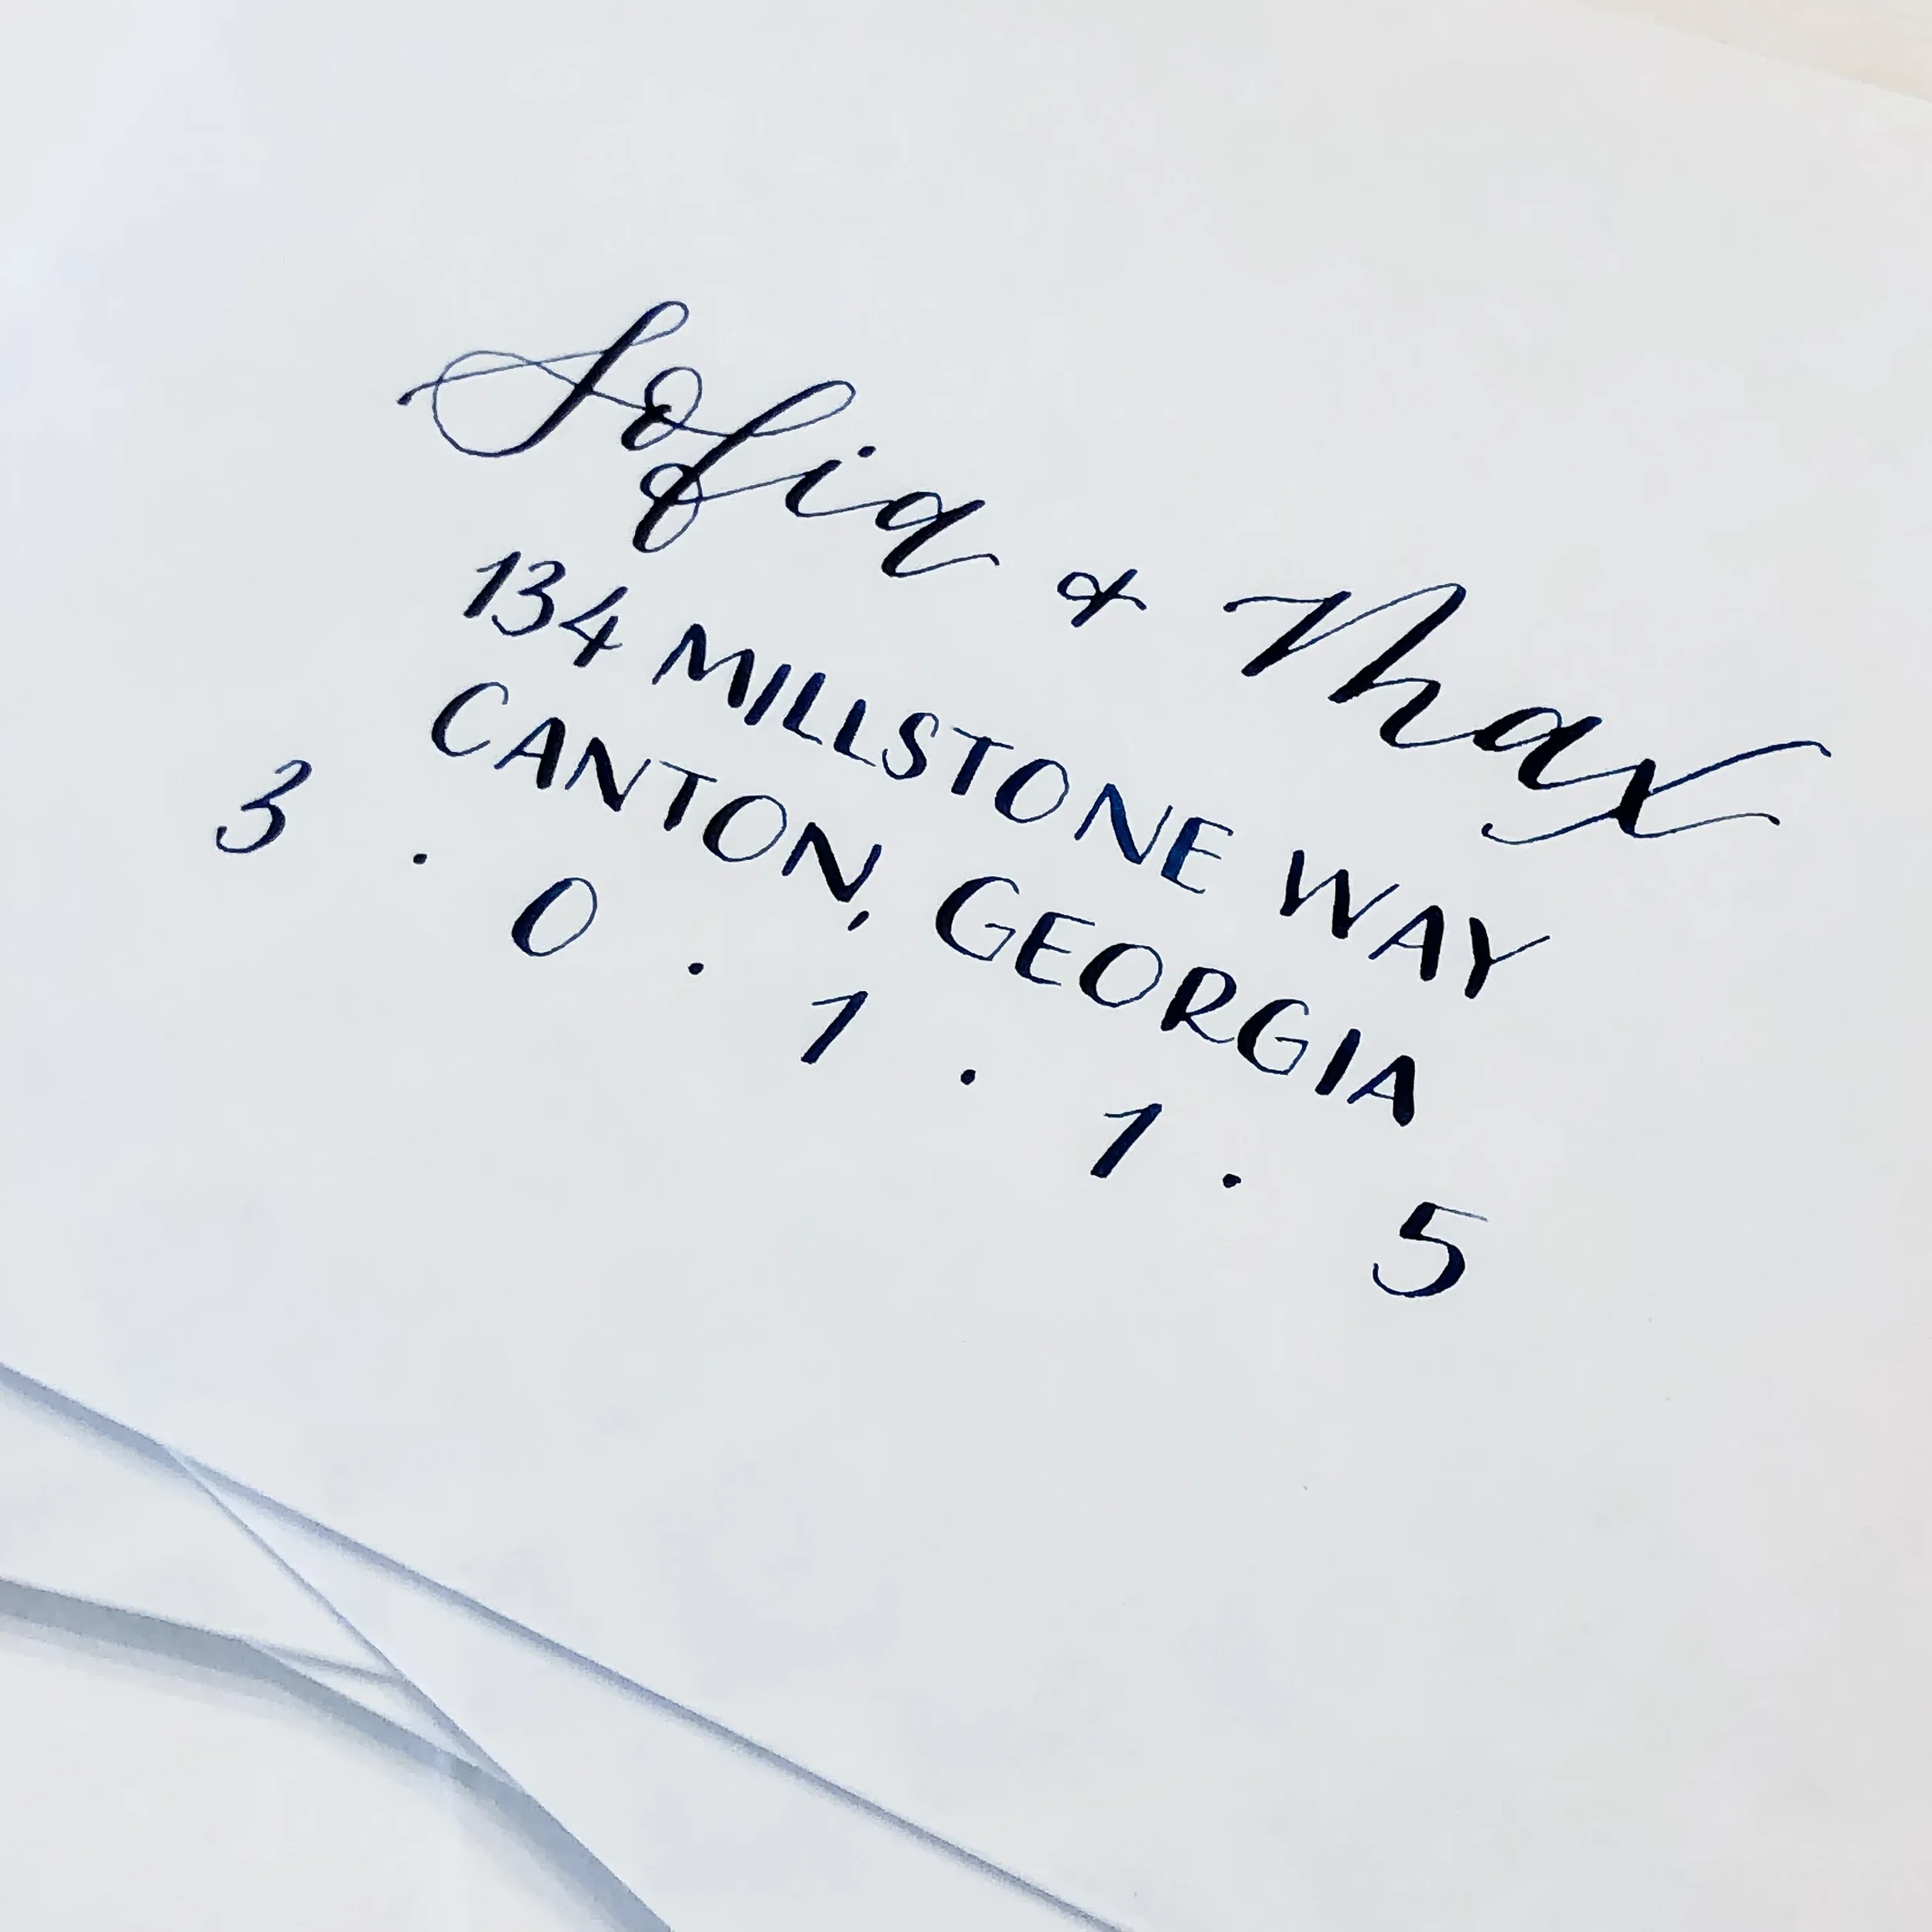 Sofia & Thax
134 MILLSTONE WAY
CANTON, GEORGIA
3 . 0 . 1 . 1 . 5